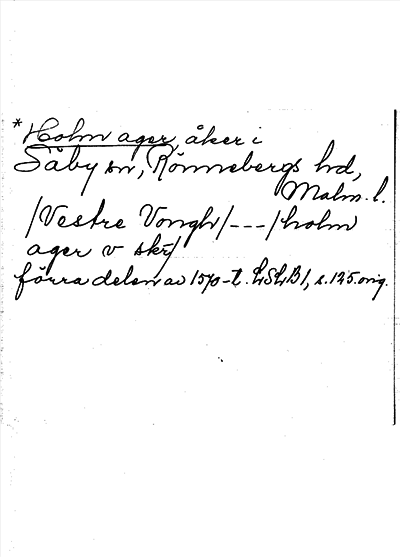 *Holm ager, åker i
Såby sn, Rönnebergs hd,
Malm. l.
/Vestre Vongh/---/holm
ager v skr/
förra delen av 1570-t. LSLB1, s. 125. orig.